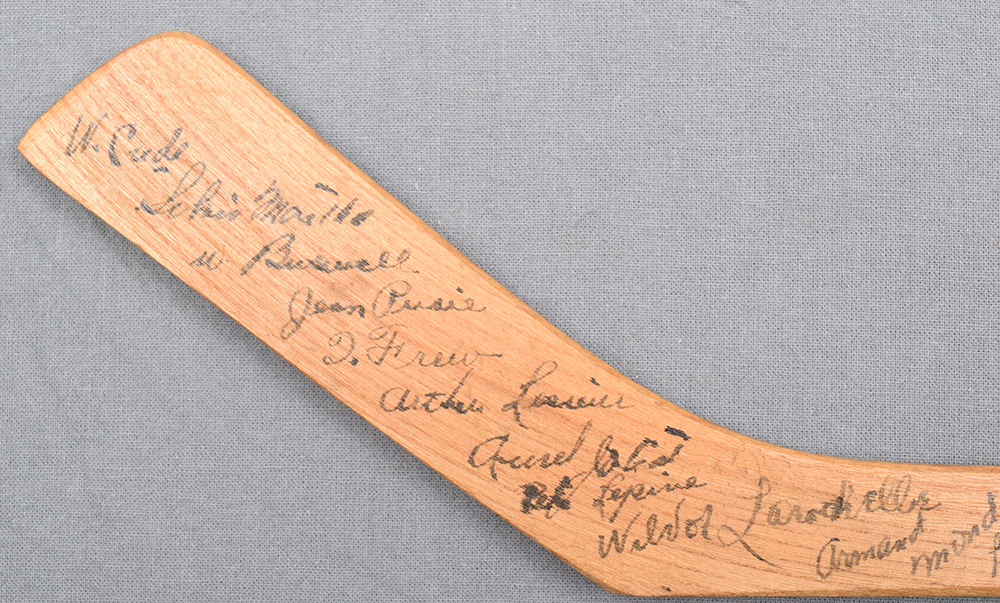 W. Cude
W. Burwell
Jean Pusie
I. Frew
Arthur Lesieur
Aurel Joliat
Pit Lepine
Wildor Larochelle
Armand Mond